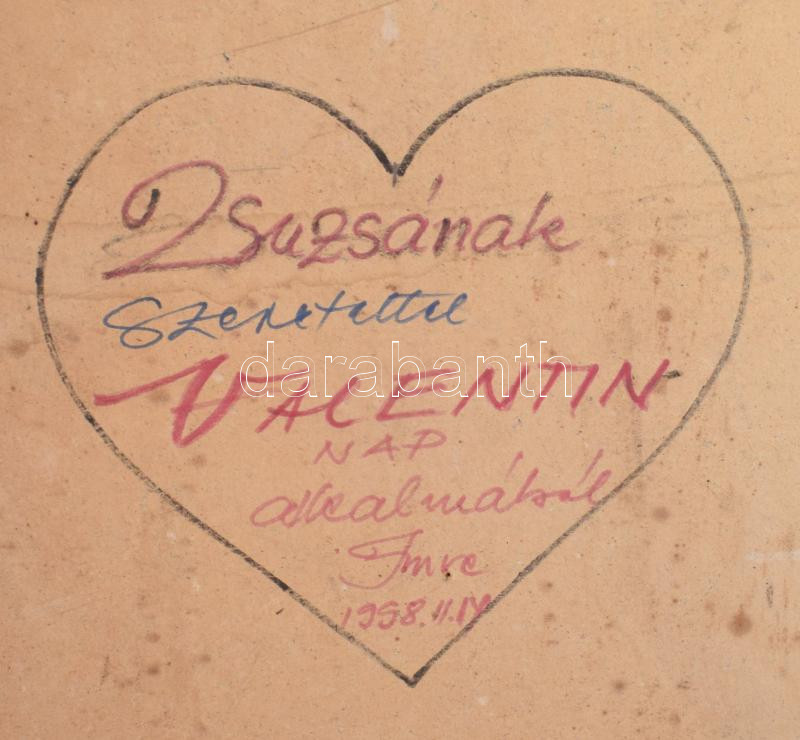 Zsuzsának
Szeretettel
VALENTIN
darabanth
NAP
alkalmából
Imre
1998.II.14